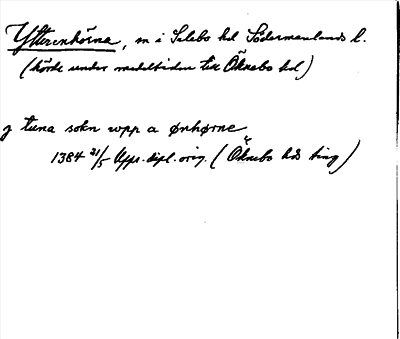 Ytterenhörna, sn i Selebo hd Södermanlands l.
(hörde under medeltiden till Öknebo hd)
j tuna sokn wpp a ønhørne
1384 21/5 Upps. dipl. orig. (Öknebo hds ting)